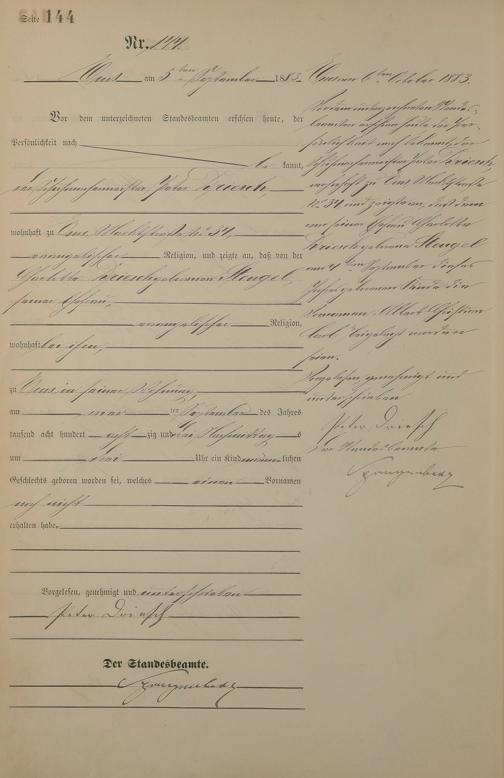 Seite 144
Nr. 144.
Ems am 5 ten September 1883.
Vor dem unterzeichneten Standesbeamten erschien heute, der
Persönlichkeit nach
be kannt,
der Schuhmachermeister Peter Driesch,
wohnhaft zu Ems, Marktstraße No 34,
evangelischer Religion, und zeigte an, daß von der
Charlotte Driesch geborenen Stengel,
seiner Ehefrau,
evangelischer Religion,
wohnhaft bei ihm,
zu Ems in seiner Wohnung,
am ten September des Jahres
tausend acht hundert acht zig und drei Nachmittag s
um Uhr ein Kind männ lichen
Geschlechts geboren worden sei, welches einen Vornamen
noch nicht
erhalten habe.
Vorgelesen, genehmigt und unterschrieben
Peter Driesch
Der Standesbeamte.
Ems am 6 ten October 1883.
Vor dem unterzeichneten Standes-
beamten erschien heute der Per-
sönlichkeit nach bekannt, der
Schuhmachermeister Peter Driesch
wohnhaft zu Ems, Marktstraße
No 34 und zeigte an, daß dem
von seiner Ehefrau Charlotte
Driesch geborenen Stengel
am 4 ten September dieses
Jahres geborenen Kinde die
Vornamen Albert Christian
Carl beigelegt worden
seien.
Vorgelesen, genehmigt und
unterschrieben
Peter Driesch
Der Standesbeamte